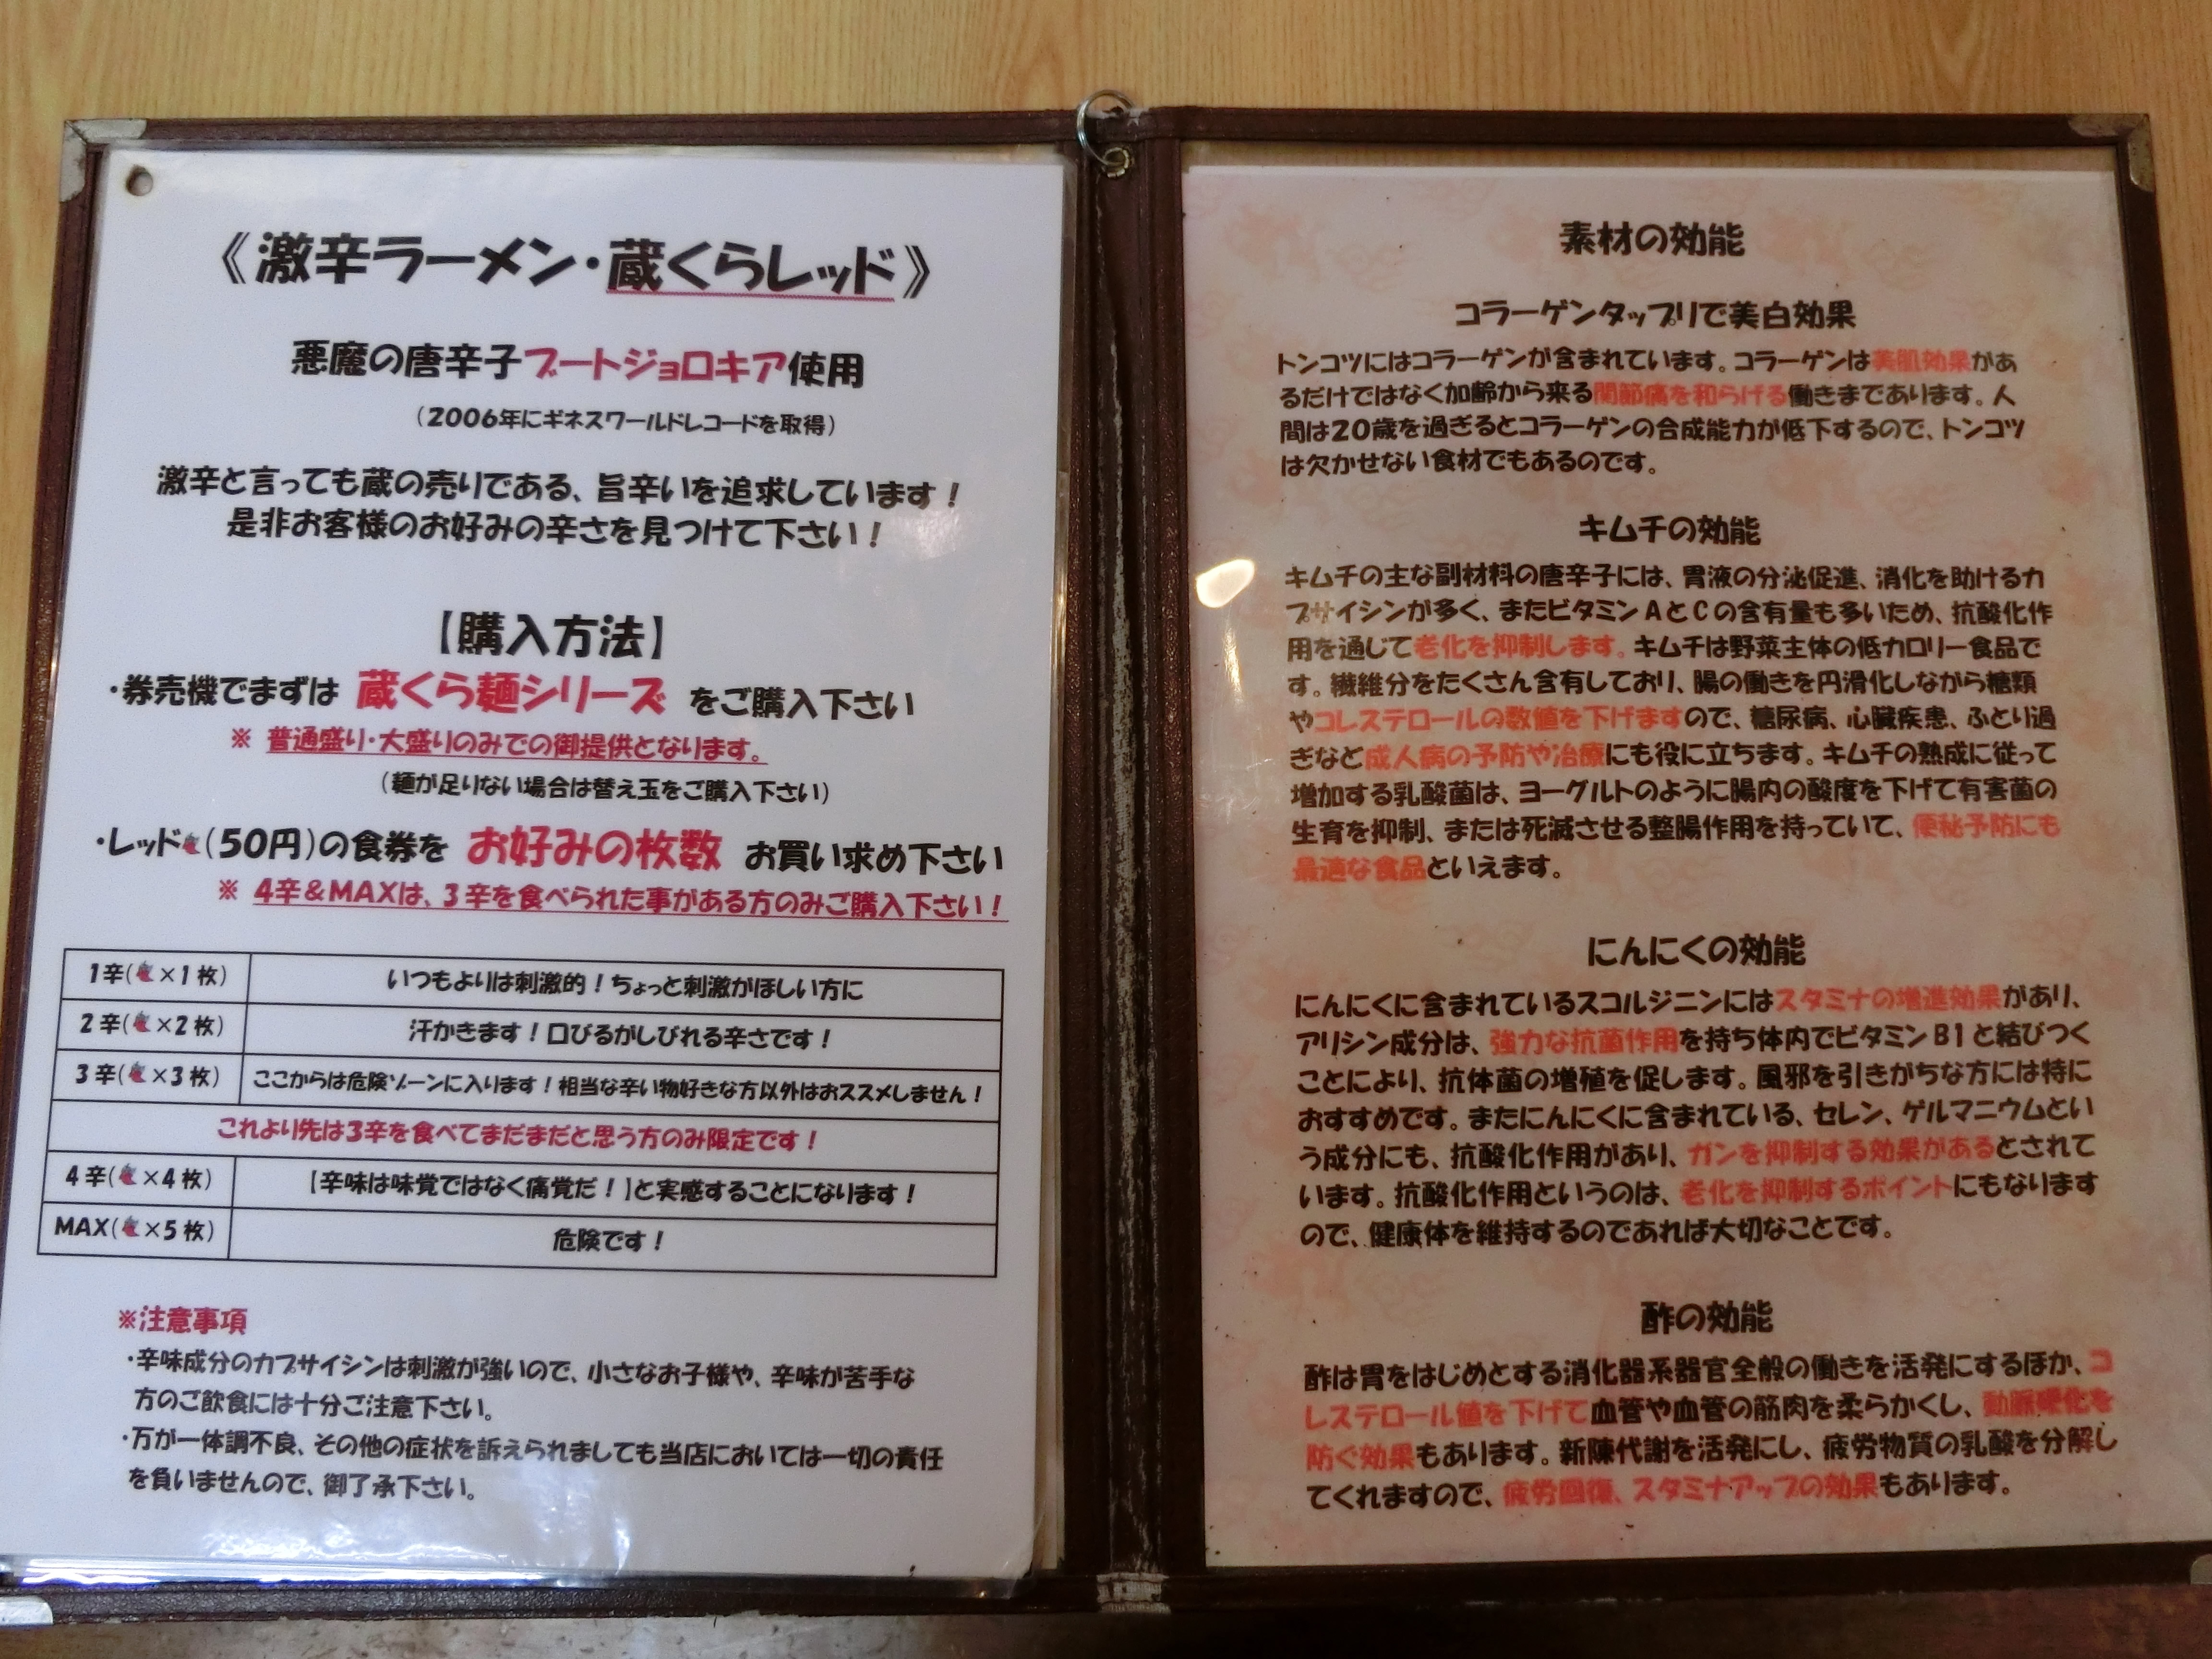 《激辛ラーメン・蔵くらレッド》
悪魔の唐辛子ブートジョロキア使用
(2006年にギネスワールドレコードを取得)
激辛と言っても蔵の売りである、旨辛いを追求しています!
是非お客様のお好みの辛さを見つけて下さい!
【購入方法】
・券売機でまずは 蔵くら麺シリーズ をご購入下さい
※ 普通盛り・大盛りのみでの御提供となります。
(麺が足りない場合は替え玉をご購入下さい)
・レッド(50円)の食券を お好みの枚数 お買い求め下さい
※ 4辛&MAXは、3辛を食べられた事がある方のみご購入下さい!
1辛(×1枚) いつもよりは刺激的!ちょっと刺激がほしい方に
2辛(×2枚) 汗かきます!口びるがしびれる辛さです!
3辛(×3枚) ここからは危険ゾーンに入ります!相当な辛い物好きな方以外はおススメしません!
これより先は3辛を食べてまだまだと思う方のみ限定です!
4辛(×4枚) 【辛味は味覚ではなく痛覚だ!】と実感することになります!
MAX(×5枚) 危険です!
※注意事項
・辛味成分のカプサイシンは刺激が強いので、小さなお子様や、辛味が苦手な
方のご飲食には十分ご注意下さい。
・万が一体調不良、その他の症状を訴えられましても当店においては一切の責任
を負いませんので、御了承下さい。
素材の効能
コラーゲンタップリで美白効果
トンコツにはコラーゲンが含まれています。コラーゲンは美肌効果があ
るだけではなく加齢から来る関節痛を和らげる働きまであります。人
間は20歳を過ぎるとコラーゲンの合成能力が低下するので、トンコツ
は欠かせない食材でもあるのです。
キムチの効能
キムチの主な副材料の唐辛子には、胃液の分泌促進、消化を助けるカ
プサイシンが多く、またビタミンAとCの含有量も多いため、抗酸化作
用を通じて老化を抑制します。キムチは野菜主体の低カロリー食品で
す。繊維分をたくさん含有しており、腸の働きを円滑化しながら糖類
やコレステロールの数値を下げますので、糖尿病、心臓疾患、ふとり過
ぎなど成人病の予防や治療にも役に立ちます。キムチの熟成に従って
増加する乳酸菌は、ヨーグルトのように腸内の酸度を下げて有害菌の
生育を抑制、または死滅させる整腸作用を持っていて、便秘予防にも
最適な食品といえます。
にんにくの効能
にんにくに含まれているスコルジニンにはスタミナの増進効果があり、
アリシン成分は、強力な抗菌作用を持ち体内でビタミンB1と結びつく
ことにより、抗体菌の増殖を促します。風邪を引きがちな方には特に
おすすめです。またにんにくに含まれている、セレン、ゲルマニウムとい
う成分にも、抗酸化作用があり、ガンを抑制する効果があるとされて
います。抗酸化作用というのは、老化を抑制するポイントにもなります
ので、健康体を維持するのであれば大切なことです。
酢の効能
酢は胃をはじめとする消化器系器官全般の働きを活発にするほか、コ
レステロール値を下げて血管や血管の筋肉を柔らかくし、動脈硬化を
防ぐ効果もあります。新陳代謝を活発にし、疲労物質の乳酸を分解し
てくれますので、疲労回復、スタミナアップの効果もあります。